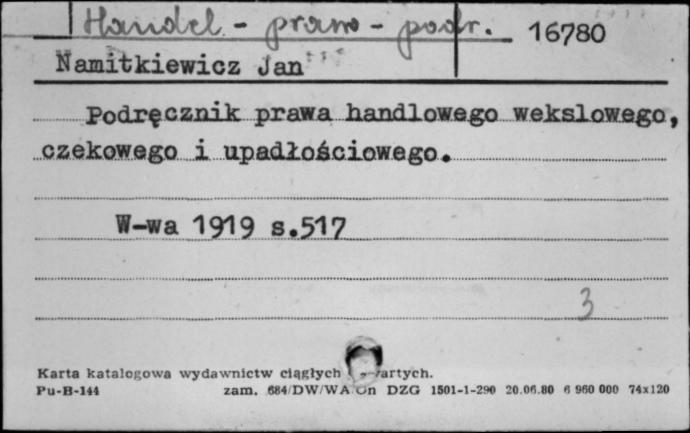 Handel - prawo - podr. 16780
Namitkiewicz Jan
Podręcznik prawa handlowego wekslowego,
czekowego i upadłościowego.
W-wa 1919 s.517
3
Karta katalogowa wydawnictw ciągłych
Pu-B-144 zam. 684/DW/WA/Un DZG 1501-1-290 20.06.80 6 960 000 74x120